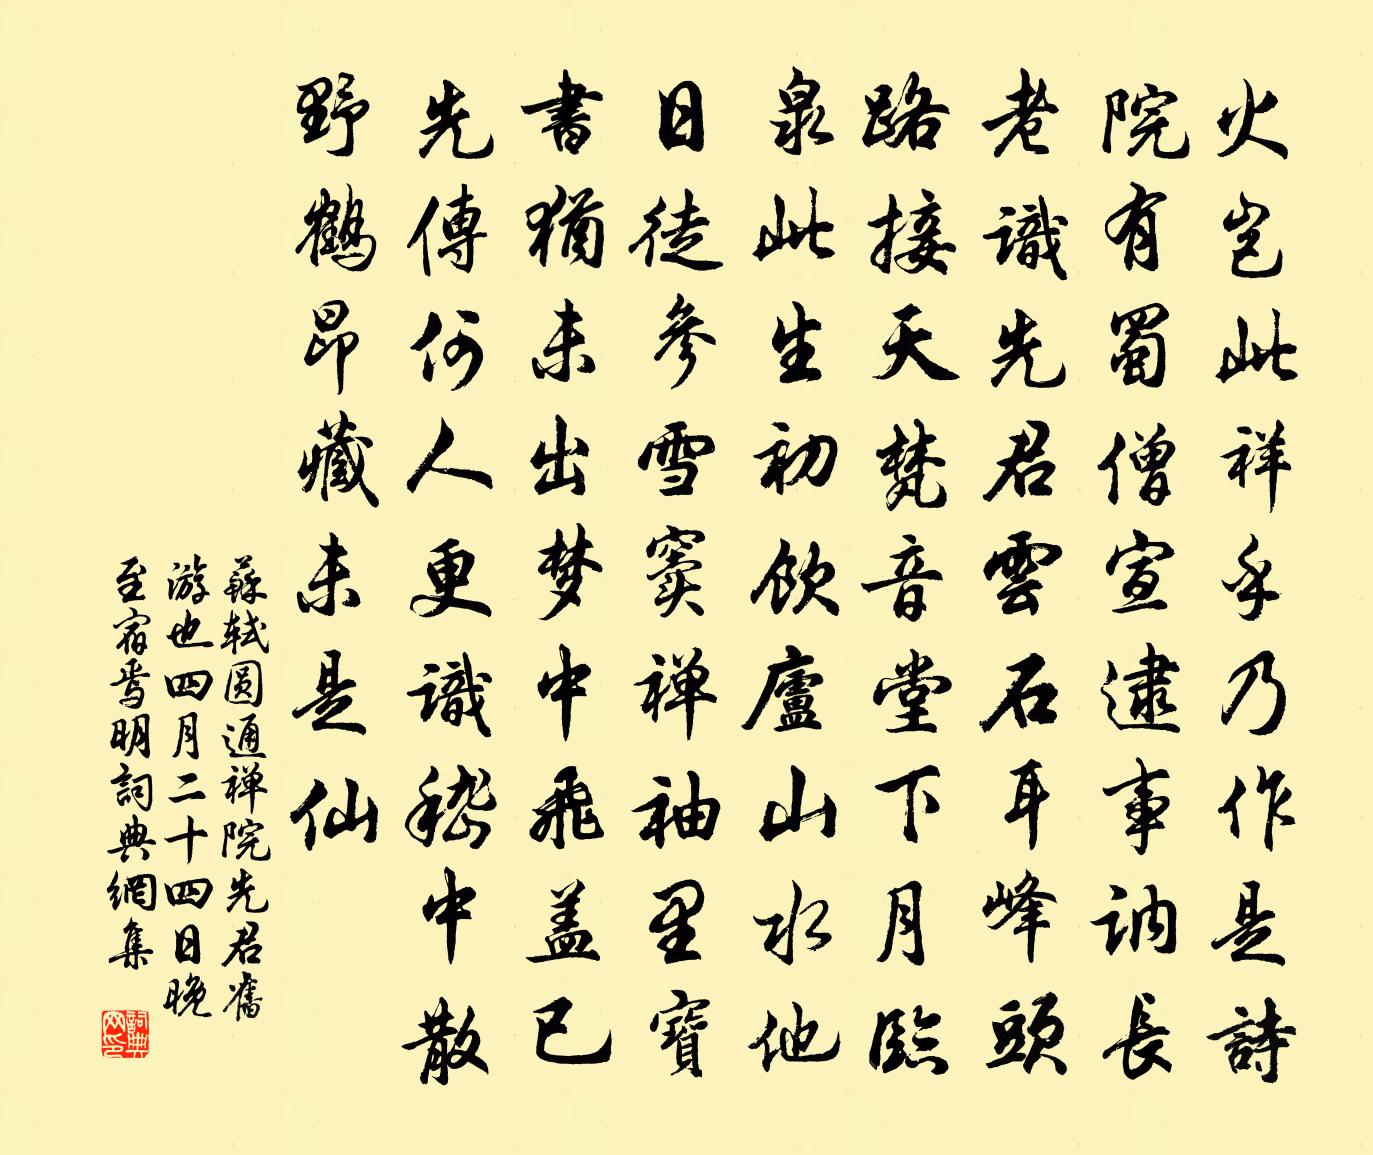 火岂此祥乎乃作是詩
院有蜀僧宣逮事訥長
老識先君雲石耳峰頭
路接天梵音堂下月臨
泉此生初飲廬山水他
日徒參雪竇禅袖里寶
書猶未出梦中飛盖已
先傳何人更識嵇中散
野鶴昂藏未是仙
蘇軾圆通禅院先君舊
游也四月二十四日晚
至宿焉明詞典網集
詞典网印